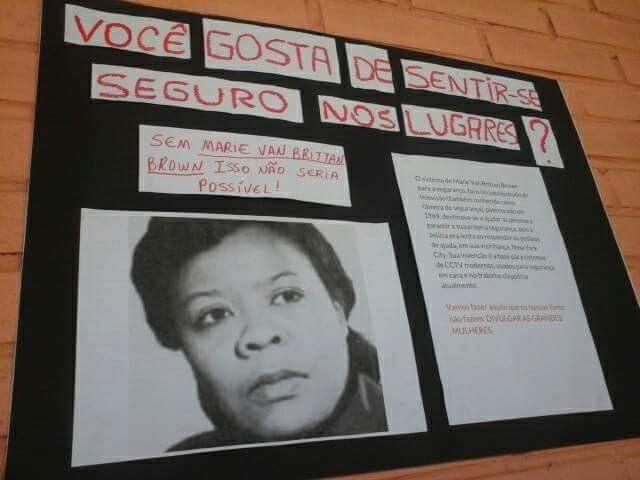 VOCÊ GOSTA DE SENTIR-SE
SEGURO NOS LUGARES?
SEM MARIE VAN BRITTAN
BROWN ISSO NÃO SERIA
POSSÍVEL!
O sistema de Marie Van Britten Brown
para a segurança, foi o circuito fechado de
televisão (também conhecido como
câmera de segurança), patenteado em
1969, destinava-se a ajudar as pessoas a
garantir a sua própria segurança, pois a
polícia era lenta ao responder os pedidos
de ajuda, em sua vizinhança, New York
City. Sua invenção é a base para sistemas
de CCTV modernos, usados para segurança
em casa e no trabalho da polícia
atualmente.
Vamos fazer aquilo que os nossos livros
não fazem: DIVULGAR AS GRANDES
MULHERES.